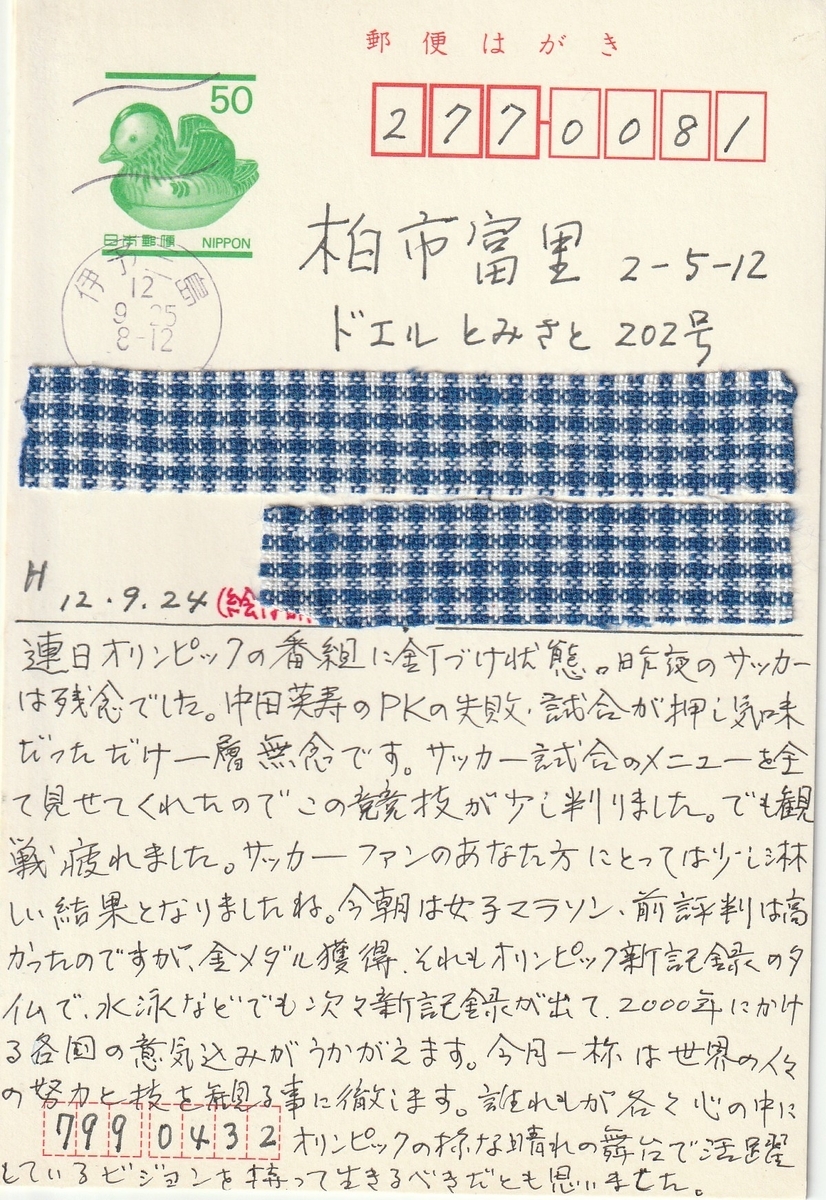 郵便はがき
50
日本郵便 NIPPON
277-0081
伊予
島
12
9 25
8-12
柏市富里 2-5-12
ドエルとみさと 202号
H 12.9.24
連日オリンピックの番組に釘づけ状態。昨夜のサッカー
は残念でした。中田英寿のPKの失敗、試合が押し気味
だっただけ一層無念です。サッカー試合のメニューを全
て見せてくれたのでこの競技が少し判りました。でも観
戦疲れました。サッカーファンのあなた方にとっては少し淋
しい結果となりましたね。今朝は女子マラソン、前評判は高
かったのですが、金メダル獲得、それもオリンピック新記録のタ
イムで、水泳などでも次々新記録が出て、2000年にかけ
る各国の意気込みがうかがえます。今月一杯は世界の人々
の努力と技を観る事に徹します。誰れもが各々心の中に
オリンピックの様な晴れの舞台で活躍
しているビジョンを持って生きるべきだとも思いました。
799 0432